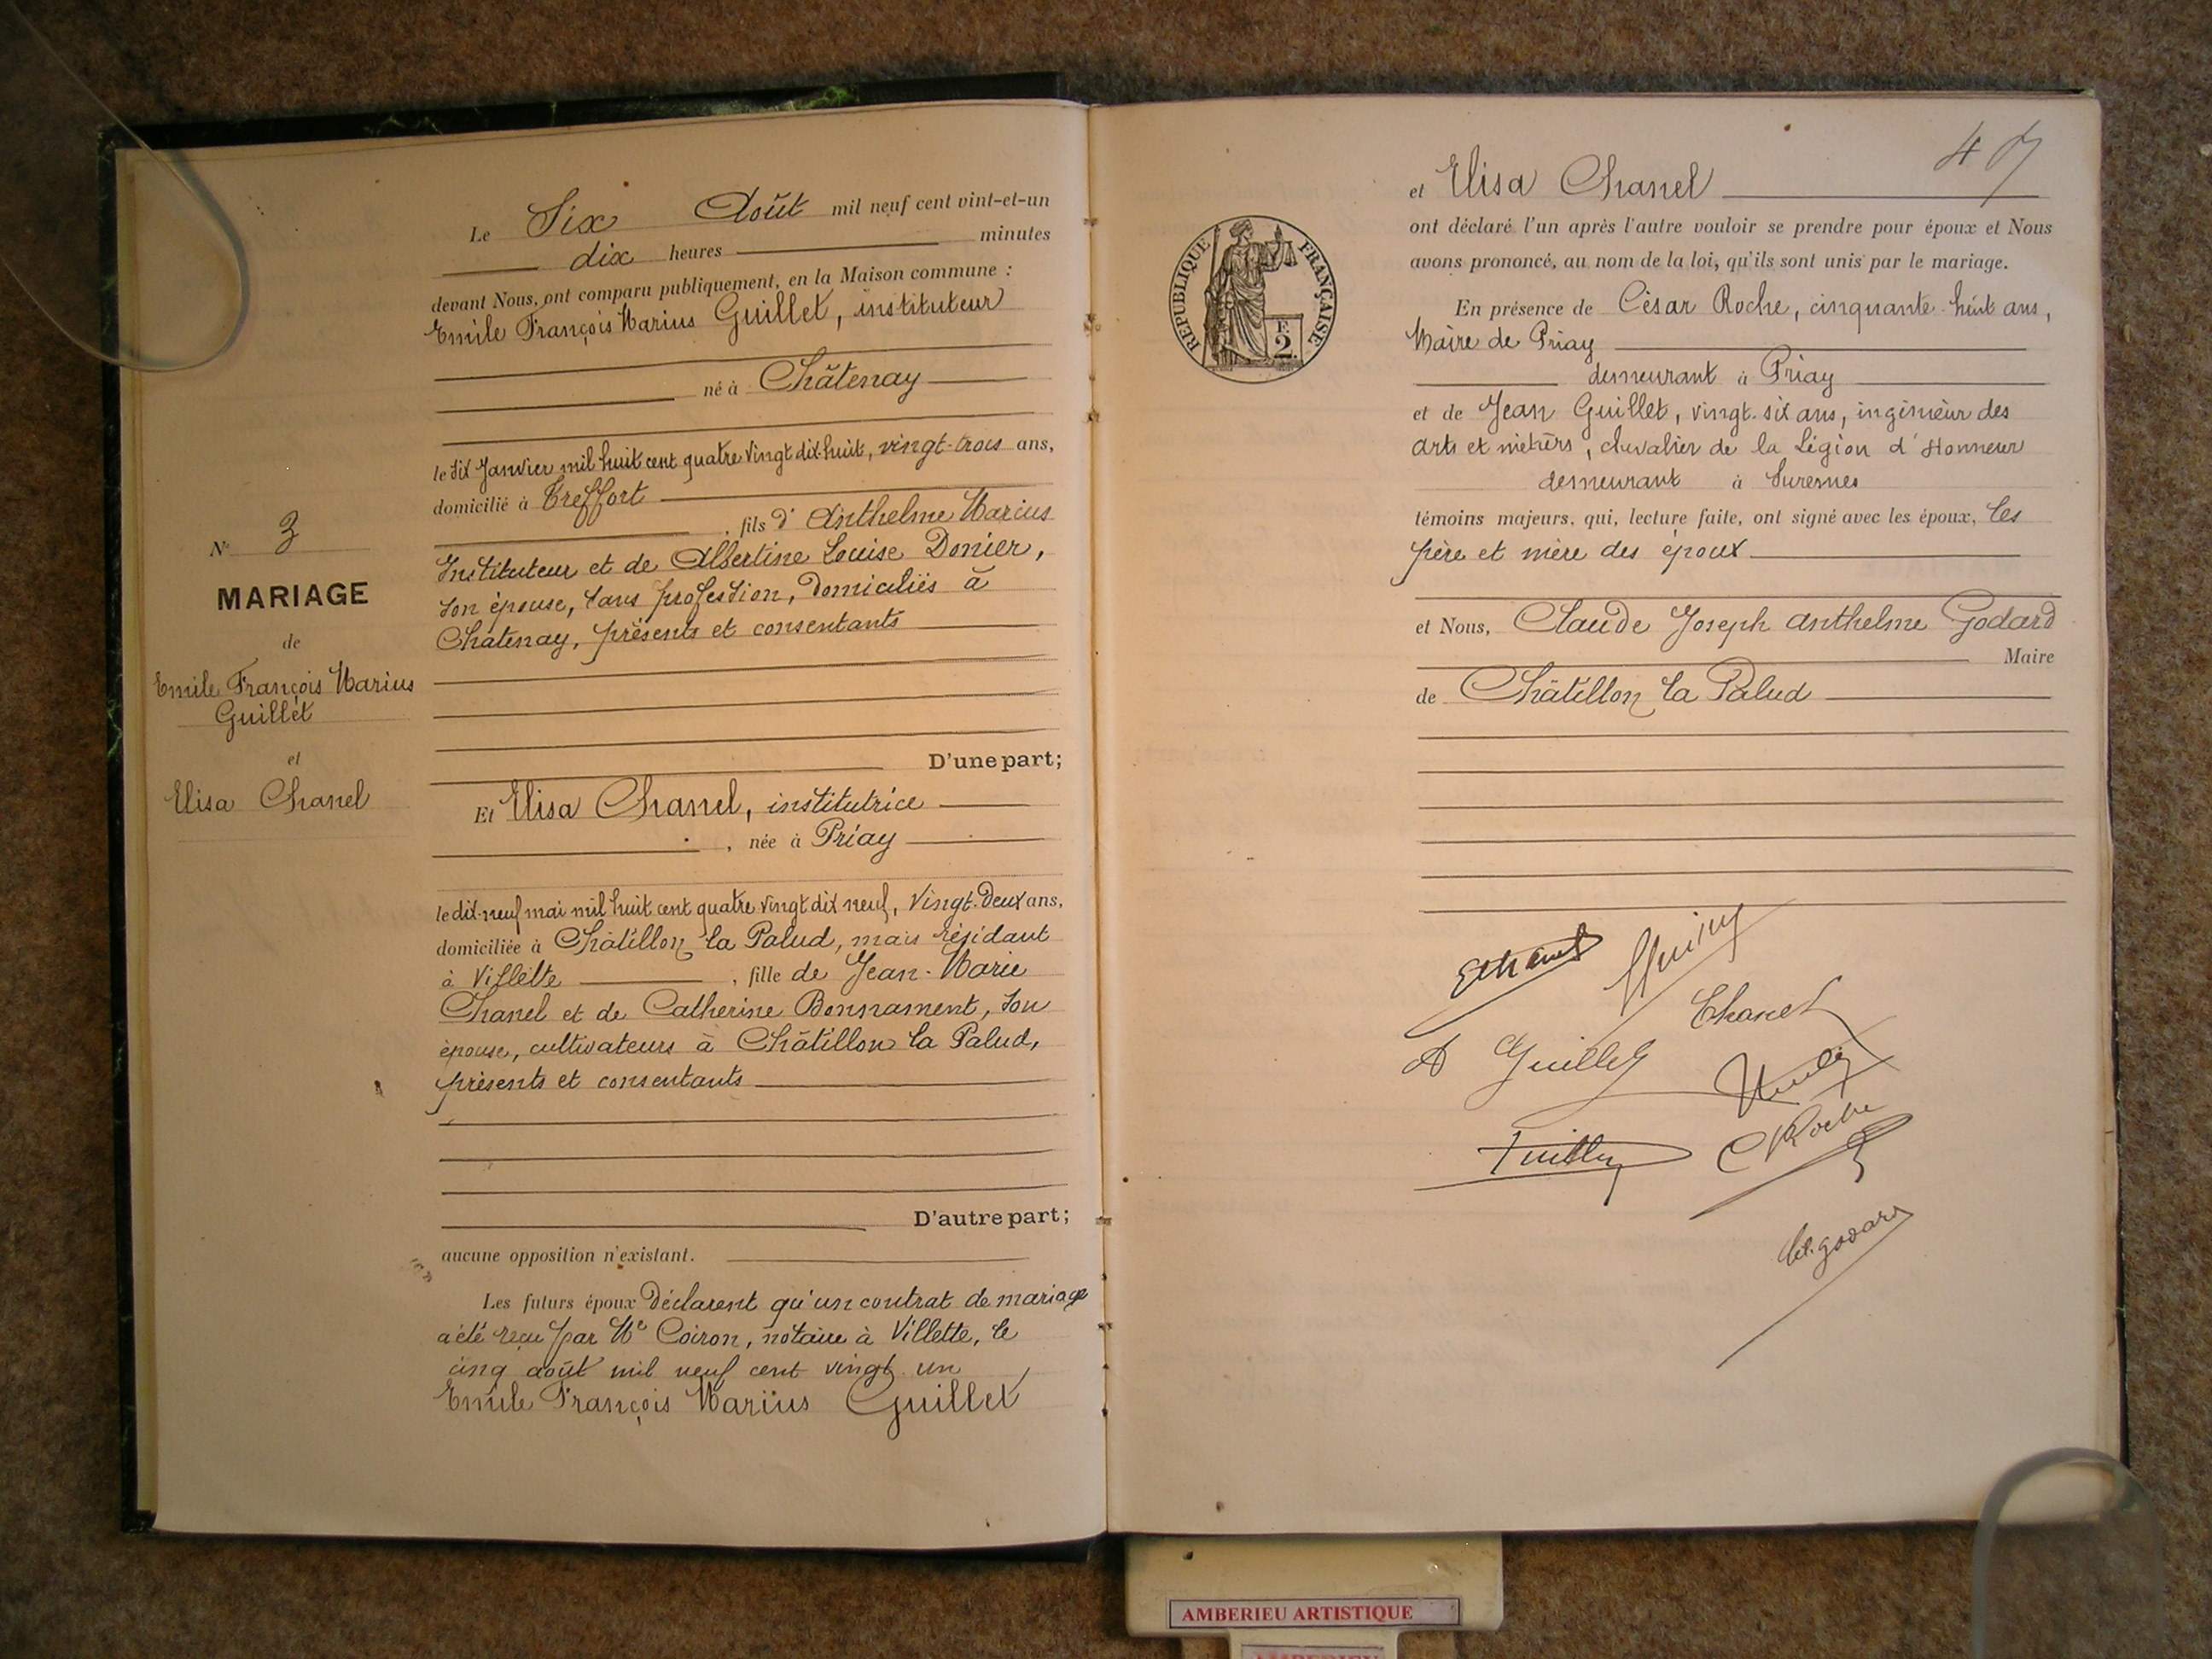 Le Six Août mil neuf cent vint-et-un
dix heures minutes
devant Nous, ont comparu publiquement, en la Maison commune :
Emile François Marius Guillet, instituteur
né à Châtenay
le six Janvier mil huit cent quatre vingt dix-huit, vingt-trois ans,
domicilié à Treffort
, fils d' Anthelme Marius
Instituteur et de Albertine Louise Donier,
son épouse, sans profession, domiciliés à
Châtenay, présents et consentants
D'une part;
N° 3
MARIAGE
de
Emile François Marius
Guillet
et
Elisa Chanel
Et Elisa Chanel, institutrice
, née à Priay
le dix-neuf mai mil huit cent quatre vingt dix neuf, vingt-deux ans,
domiciliée à Châtillon la Palud, mais résidant
à Villette , fille de Jean-Marie
Chanel et de Catherine Bonnament, son
épouse, cultivateurs à Châtillon la Palud,
présents et consentants
D'autre part;
aucune opposition n'existant.
Les futurs époux déclarent qu'un contrat de mariage
a été reçu par Me Coiron, notaire à Villette, le
cinq août mil neuf cent vingt un
Emile François Marius Guillet
47
et Elisa Chanel
ont déclaré l'un après l'autre vouloir se prendre pour époux et Nous
avons prononcé, au nom de la loi, qu'ils sont unis par le mariage.
REPUBLIQUE FRANÇAISE
F.
2.
En présence de César Roche, cinquante-huit ans,
Maire de Priay
demeurant à Priay
et de Jean Guillet, vingt-six ans, ingénieur des
arts et métiers, chevalier de la Légion d'Honneur
demeurant à Suresnes
témoins majeurs, qui, lecture faite, ont signé avec les époux, les
père et mère des époux
et Nous, Claude Joseph Anthelme Godard
Maire
de Châtillon la Palud
EChanel
Chanel
A Guillet
CRoche
godard
AMBERIEU ARTISTIQUE
AMBERIEU